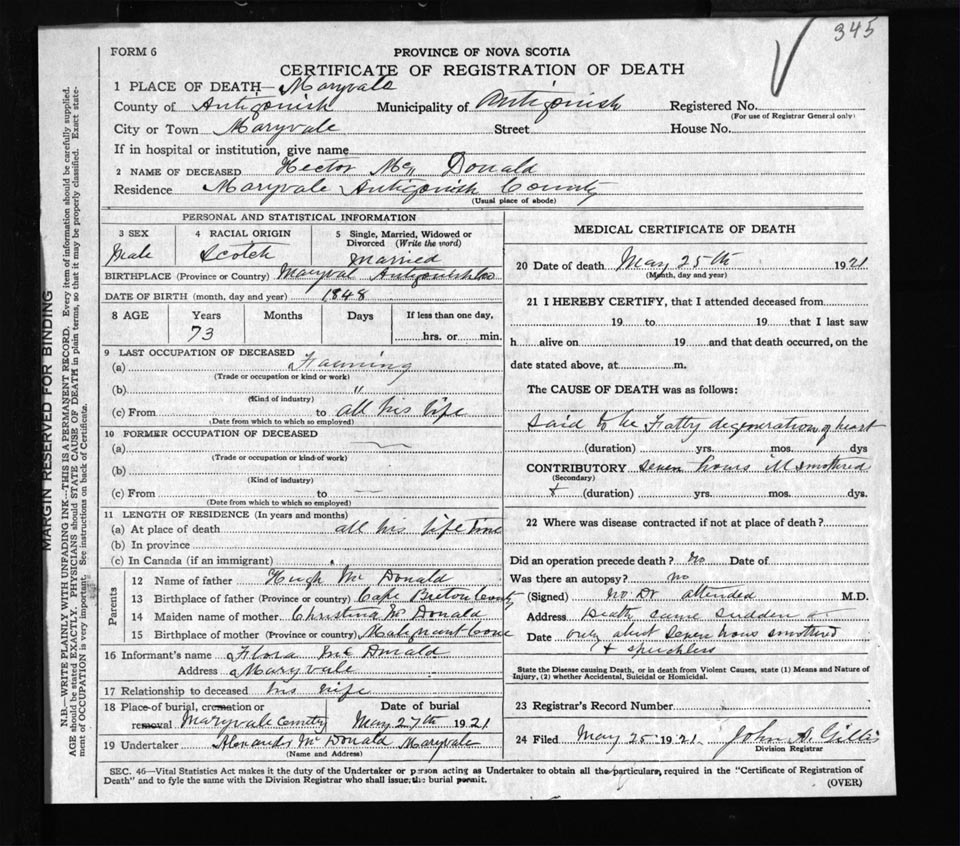 345
FORM 6
PROVINCE OF NOVA SCOTIA
CERTIFICATE OF REGISTRATION OF DEATH
1 PLACE OF DEATH— Maryvale
County of Antigonish Municipality of Antigonish Registered No.
(For use of Registrar General only)
City or Town Maryvale Street House No.
If in hospital or institution, give name
2 NAME OF DECEASED Hector Mc Donald
Residence Maryvale Antigonish County
(Usual place of abode)
PERSONAL AND STATISTICAL INFORMATION
3 SEX 4 RACIAL ORIGIN 5 Single, Married, Widowed or Divorced (Write the word)
Male Scotch Married
BIRTHPLACE (Province or Country) Maryval Antigonish Co
DATE OF BIRTH (month, day and year) 1848
8 AGE Years Months Days If less than one day,
73 hrs. or min.
9 LAST OCCUPATION OF DECEASED
(a) Farming
(Trade or occupation or kind or work)
(b) "
(Kind of industry)
(c) From to all his life
(Date from which to which so employed)
10 FORMER OCCUPATION OF DECEASED
(a)
(Trade or occupation or kind of work)
(b)
(Kind of industry)
(c) From to
(Date from which to which so employed)
11 LENGTH OF RESIDENCE (In years and months)
(a) At place of death all his life time
(b) In province
(c) In Canada (if an immigrant)
Parents
12 Name of father Hugh Mc Donald
13 Birthplace of father (Province or country) Cape Breton County
14 Maiden name of mother Christina Mc Donald
15 Birthplace of mother (Province or country) Malignant Cove
16 Informant's name Flora Mc Donald
Address Maryvale
17 Relationship to deceased his wife
18 Place of burial, cremation or removal Maryvale Cemetry Date of burial May 27th 1921
19 Undertaker Mc Donald Maryvale
(Name and Address)
MEDICAL CERTIFICATE OF DEATH
20 Date of death May 25th 1921
(Month, day and year)
21 I HEREBY CERTIFY, that I attended deceased from
19 to 19 that I last saw
h alive on 19 and that death occurred, on the
date stated above, at m.
The CAUSE OF DEATH was as follows:
Said to be Fatty degeneration of heart
(duration) yrs. mos. dys
CONTRIBUTORY seven hours ill smothered
(Secondary)
+ (duration) yrs. mos. dys.
22 Where was disease contracted if not at place of death?
Did an operation precede death? No Date of
Was there an autopsy? no
(Signed) No Dr attended M.D.
Address Death came sudden
Date only about seven hours smothered
+ speechless
State the Disease causing Death, or in death from Violent Causes, state (1) Means and Nature of
Injury, (2) whether Accidental, Suicidal or Homicidal.
23 Registrar's Record Number
24 Filed May 25 1921 John A. Gillis
Division Registrar
SEC. 46—Vital Statistics Act makes it the duty of the Undertaker or person acting as Undertaker to obtain all the particulars, required in the "Certificate of Registration of
Death" and to fyle the same with the Division Registrar who shall issue the burial permit.
(OVER)
MARGIN RESERVED FOR BINDING
N.B.—WRITE PLAINLY WITH UNFADING INK—THIS IS A PERMANENT RECORD. Every item of information should be carefully supplied.
AGE should be stated EXACTLY. PHYSICIANS should STATE CAUSE OF DEATH in plain terms, so that it may be properly classified. Exact state-
ment of OCCUPATION is very important. See instructions on back of Certificate.